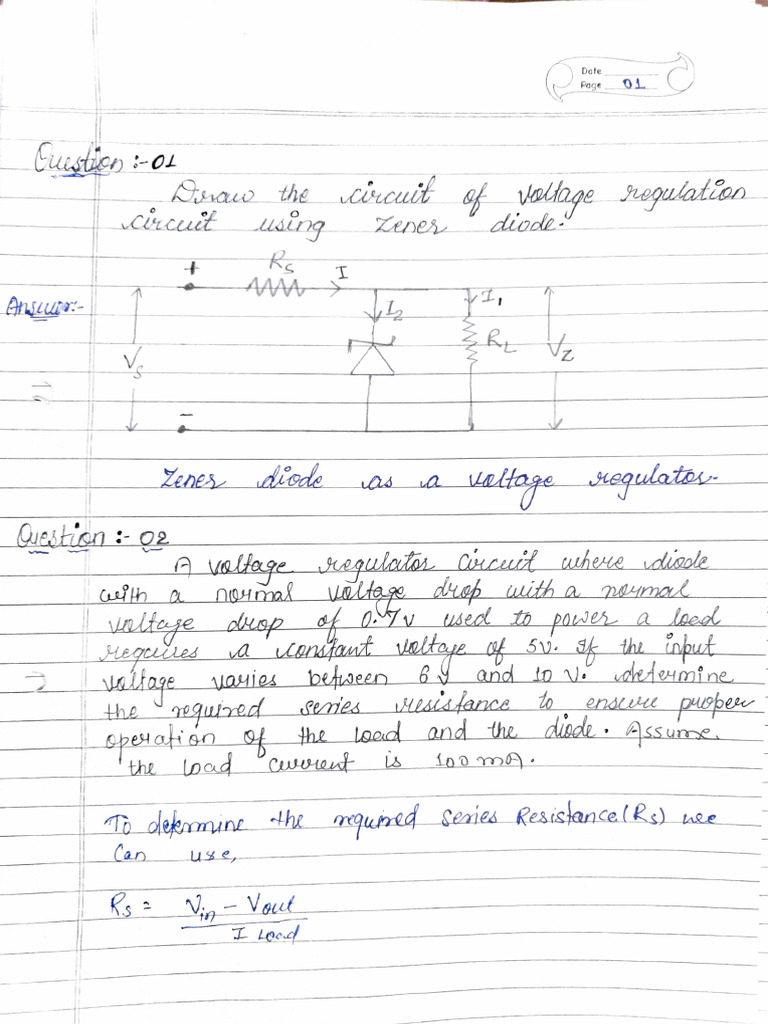 Date
Page 01
Question :- 01
Draw the circuit of voltage regulation
circuit using zener diode.
Answer:-
+ RS I
I2 I1
VS RL VZ
-
Zener diode as a voltage regulator.
Question :- 02
A voltage regulator circuit where diode
with a normal voltage drop with a normal
voltage drop of 0.7v used to power a load
requires a constant voltage of 5v. If the input
voltage varies between 6v and 10 v. determine
the required series resistance to ensure proper
operation of the load and the diode. Assume.
the load current is 100mA.
To determine the required series Resistance(Rs) we
can use,
Rs = Vin - Vout
I Load